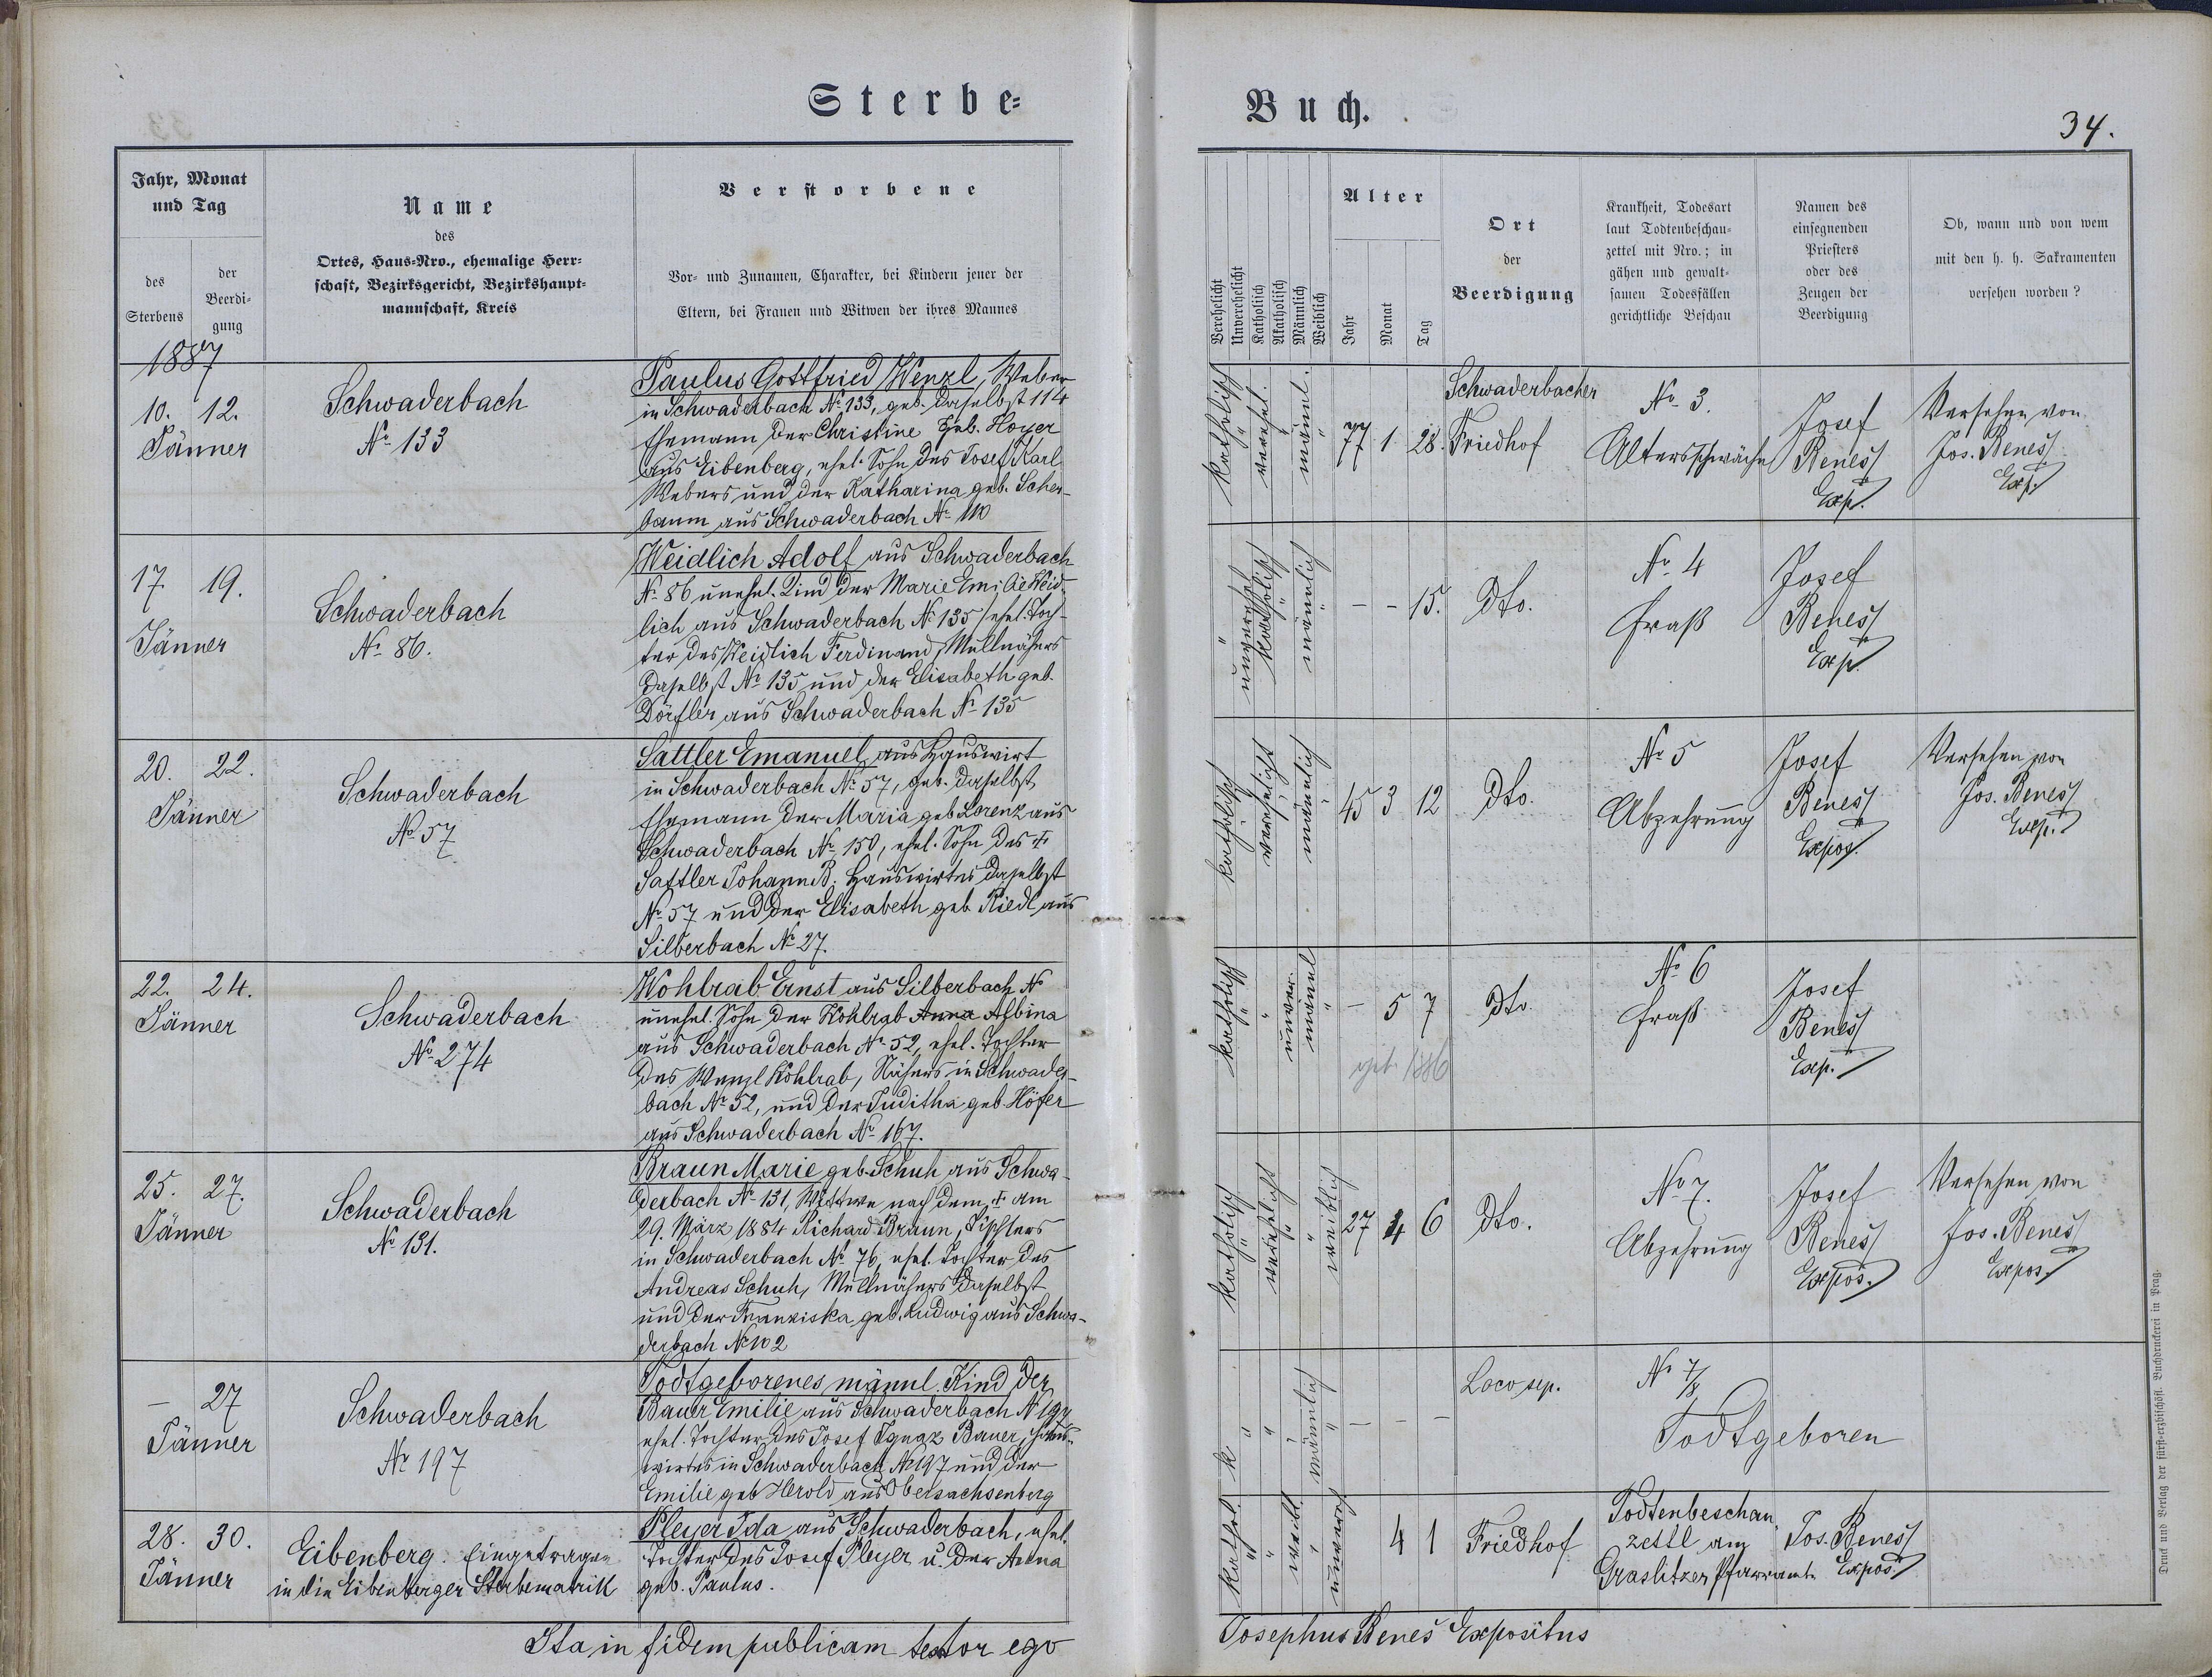 Sterbe-
Buch.
34.
Jahr, Monat
und Tag
des
Sterbens
der
Beerdi-
gung
Name
des
Ortes, Haus-Nro., ehemalige Herr-
schaft, Bezirksgericht, Bezirkshaupt-
mannschaft, Kreis
Verstorbene
Vor- und Zunamen, Charakter, bei Kindern jener der
Eltern, bei Frauen und Witwen der ihres Mannes
Verehelicht
Unverehelicht
Katholisch
Akatholisch
Männlich
Weiblich
Alter
Jahr
Monat
Tag
Ort
der
Beerdigung
Krankheit, Todesart
laut Todtenbeschau-
zettel mit Nro.; in
gähen und gewalt-
samen Todesfällen
gerichtliche Beschau
Namen des
einsegnenden
Priesters
oder des
Zeugen der
Beerdigung
Ob, wann und von wem
mit den h. h. Sakramenten
versehen worden?
1887
10. 12.
Jänner
Schwaderbach
No 133
Paulus Gottfried Wenzl, Weber
in Schwaderbach No 133, geb. daselbst 114
Ehemann der Christine geb. Hoyer
aus Eibenberg, ehel. Sohn des Josef Karl
Webers und der Katharina geb. Scher-
baum aus Schwaderbach No 110
katholisch
verehel.
männl.
77 1 28.
Schwaderbacher
Friedhof
No 3.
Altersschwäche
Josef
Beneš
Exp.
Versehen von
Jos. Beneš
Exp.
17. 19.
Jänner
Schwaderbach
No 86.
Weidlich Adolf aus Schwaderbach
No 86 unehel. Kind der Marie Emilie Weid-
lich aus Schwaderbach No 135 / ehel. Toch-
ter des Weidlich Ferdinand, Mullnähers
daselbst No 135 und der Elisabeth geb.
Dörfler aus Schwaderbach No 135
unverehel
katholisch
männlich
- - 15.
dto.
No 4
Fraß
Josef
Beneš
Exp.
20. 22.
Jänner
Schwaderbach
No 57
Sattler Emanuel, aus Hauswirt
in Schwaderbach No 57, geb. daselbst,
Ehemann der Maria geb. Lorenz aus
Schwaderbach No 150, ehel. Sohn des †
Sattler Johann B. Hauswirtes daselbst
No 57 und der Elisabeth geb. Riedl aus
Silberbach No 27.
katholisch
verehelicht
männlich
45 3 12
dto.
No 5
Abzehrung
Josef
Beneš
Expos.
Versehen von
Jos. Beneš
Exp.
22. 24.
Jänner
Schwaderbach
No 274
Kohlrab Ernst aus Silberbach No
unehel. Sohn der Kohlrab Anna Albina
aus Schwaderbach No 52, ehel. Tochter
des Wenzl Kohlrab, Nähers in Schwader-
bach No 52, und der Juditha geb. Höfer
aus Schwaderbach No 167.
katholisch
unver.
männl
- 5 7
geb. 1886
dto.
No 6
Fraß
Josef
Beneš
Exp.
25. 27.
Jänner
Schwaderbach
No 131.
Braun Marie geb. Schuh aus Schwa-
derbach No 131, Wittwe nach dem † am
29. März 1884 Richard Braun, Tischlers
in Schwaderbach No 76, ehel. Tochter des
Andreas Schuh, Mullnähers daselbst
und der Franziska geb. Ludwig aus Schwa-
derbach No 102
katholisch
verehelicht
weiblich
27 4 6
dto.
No 7.
Abzehrung
Josef
Beneš
Expos.
Versehen von
Jos. Beneš
Expos.
- 27
Jänner
Schwaderbach
No 197
Todtgeborenes männl. Kind der
Bauer Emilie aus Schwaderbach No 197
ehel. Tochter des Josef Ignaz Bauer, Haus-
wirtes in Schwaderbach No 197 und der
Emilie geb. Herold aus Obersachsenberg
k
männlich
- - -
Loco sep.
No 7/8
Todtgeboren
28. 30.
Jänner
Eibenberg. Eingetragen
in die Eibenberger Sterbematrik
Pleyer Ida aus Schwaderbach, ehel.
Tochter des Josef Pleyer u. der Anna
geb. Paulus.
kathol.
weibl.
unvereh
4 1
Friedhof
Todtenbeschau
zettl am
Graslitzer Pfarramte
Jos. Beneš
Expos.
Ita in fidem publicam testor ego
Josephus Beneš Expositus
Druck und Verlag der fürst-erzbischöfl. Buchdruckerei in Prag.